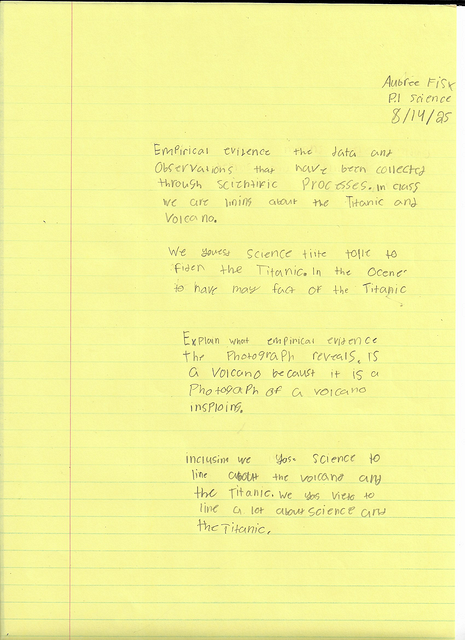 Aubree Fisk
P.1 Science
8/14/25
Empirical evidence the data and
Observations that have been collected
through scientific Processes. In class
we are lining about the Titanic and
Volcano.
We youess science tite tolle to
fiden the Titanic. In the Ocener
to have may fact of the Titanic
Explain what empirical evidence
the Photograph reveals. Is
a Volcano becaust it is a
Photograph of a volcano
insploing.
Inclusine we yose science to
line about the volcano any
the Titanic. We yos vieto to
line a lot about science and
the Titanic.